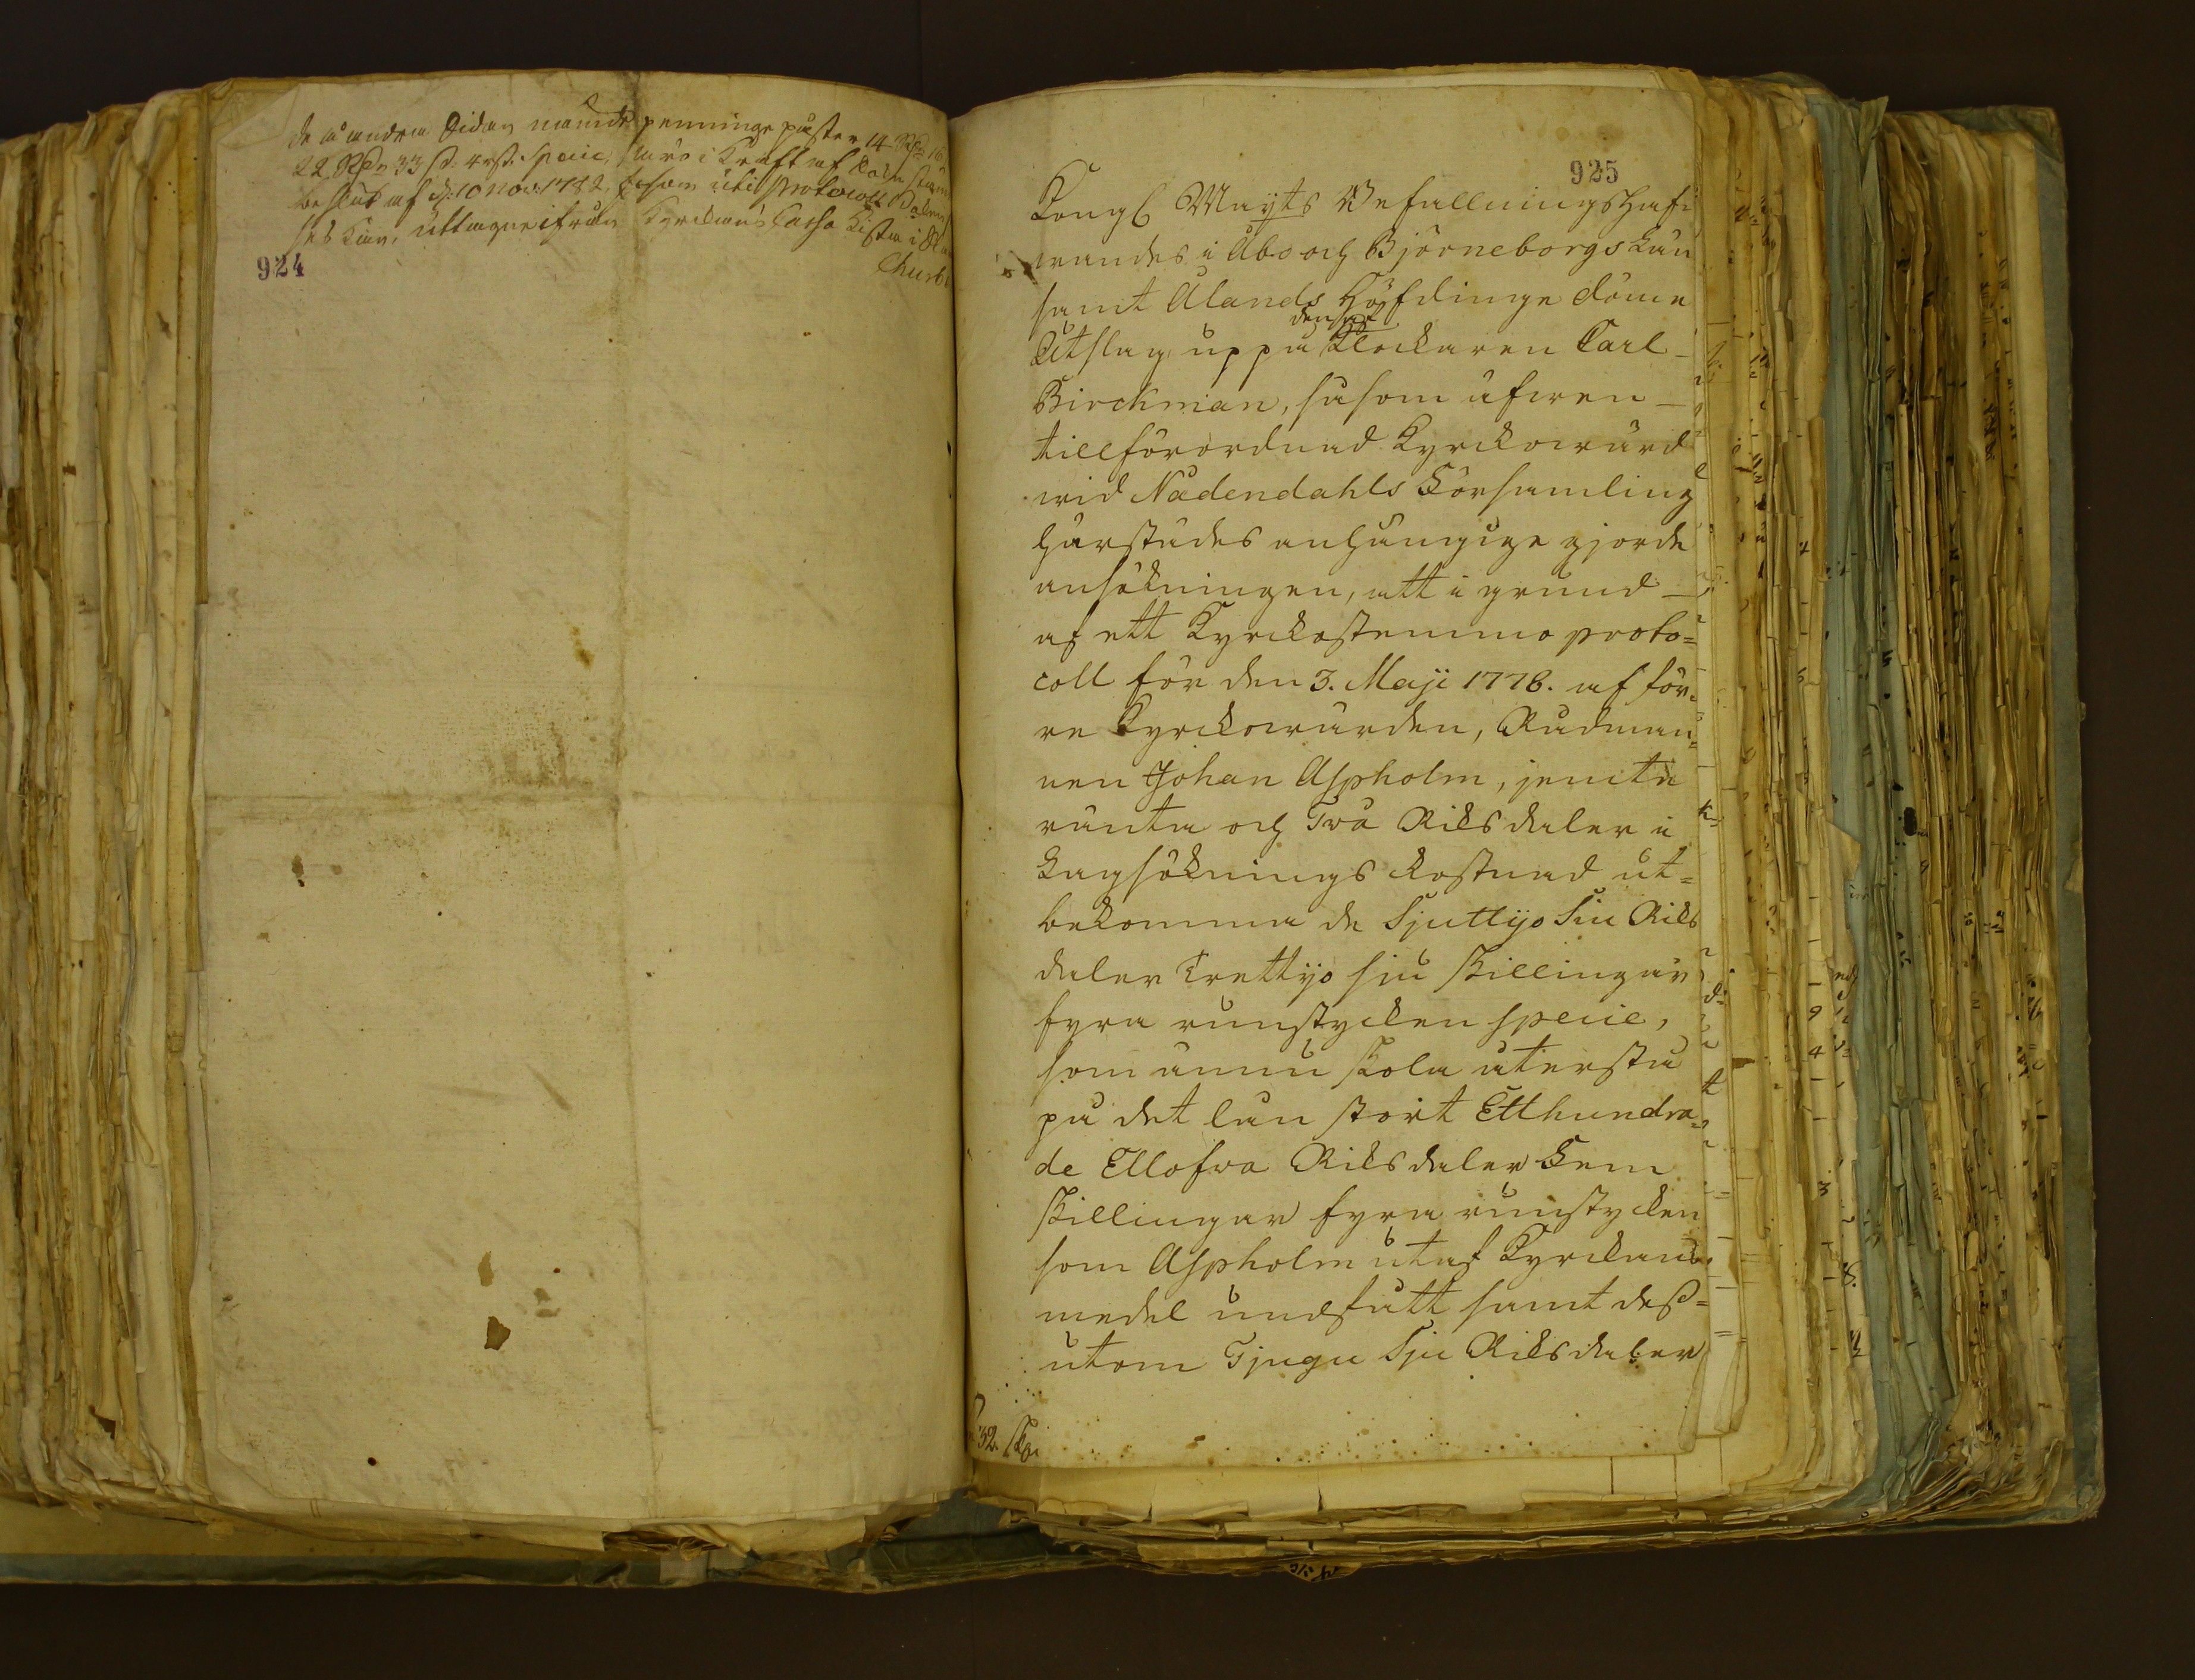 de å andra Sidan nämde penninge poster 14 Rd:r 16
22 Rd:r 33 s. 4 rst. Specie, äro i Kraft af Sockn stämmo
beslut af d: 10 Nov: 1782, såsom uti Protocoll
ses kan, uttagne ifrån Kyrckans Cassa Kista i
924
925
Kongl Mayts Befallningshafwandes i Åbo och Björneborgs Län
samt Ålands Höfdinge döme
Utslag uppå den af Klockaren Carl
Birckman, såsom äfwen
tillförordnad Kyrckowärd
wid Nådendahls Församling
härstädes anhängige gjorde
ansökningen, att i grund
af ett Kyrckostemmo proto=
coll för den 3. Maji 1778. af för=
re Kyrckowärden, Rådman=
nen Johan Aspholm, jemte
ränta och Två Riksdaler i
Lagsöknings kostnad ut=
bekomma de Sjuttijo Siu Riks
daler Trettijo sju skillingar
fyra runstycken specie,
som ännu skola återstå
på det lån stort Etthundra=
de Ellofwa Riksdaler Fem
skillingar fyra runstycken
som Aspholm utaf Kyrckans
medel undfått samt dess=
utom Tjugu Sju Riksdaler
32 sk